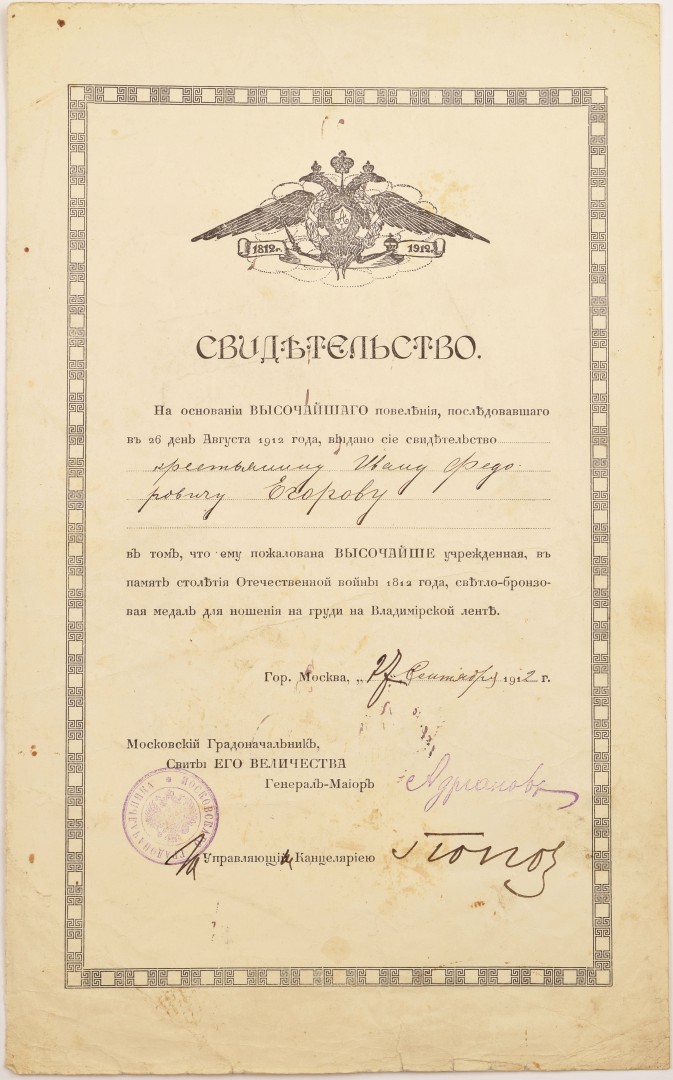 1812 г.
1912.
СВИДѢТЕЛЬСТВО.
На основаніи ВЫСОЧАЙШАГО повелѣнія, послѣдовавшаго
въ 26 день Августа 1912 года, выдано сіе свидѣтельство
крестьянину Ивану Федо-
ровичу Егорову
въ томъ, что ему пожалована ВЫСОЧАЙШЕ учрежденная, въ
память столѣтія Отечественной войны 1812 года, свѣтло-бронзо-
вая медаль для ношенія на груди на Владимірской лентѣ.
Гор. Москва, „27 Сентября 1912 г.
Московскій Градоначальникъ,
Свиты ЕГО ВЕЛИЧЕСТВА
Генералъ-Маіоръ Адріановъ
МОСКОВСКАГО ГРАДОНАЧАЛЬНИКА
Управляющій Канцеляріею Попов